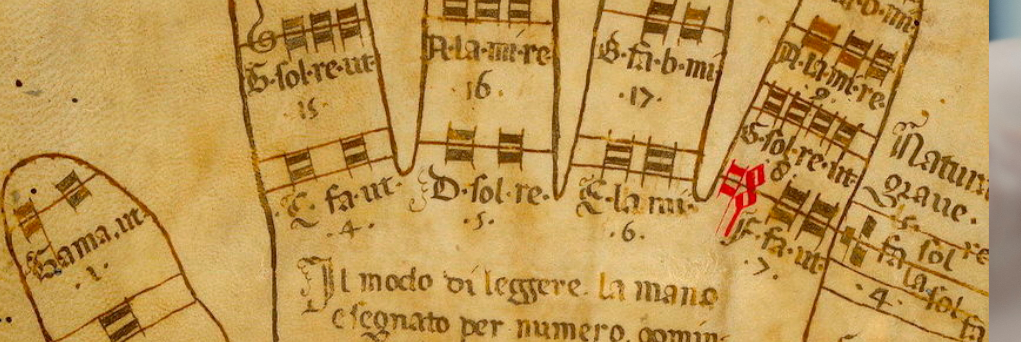 G·sol·re·ut·
·15·
A·la·mi·re
·16·
B·fa·b·mi
·17·
A·la·mi·re·
·9·
G·sol·re·ut·
·8·
C·fa·ut·
·4·
D·sol·re·
·5·
E·la·mi·
·6·
F·fa·ut·
·7·
Gama·ut·
·1·
Natura
graue·
fa sol re
la sol
·4·
fa
Il modo di leggere· la mano
e segnato per numero,